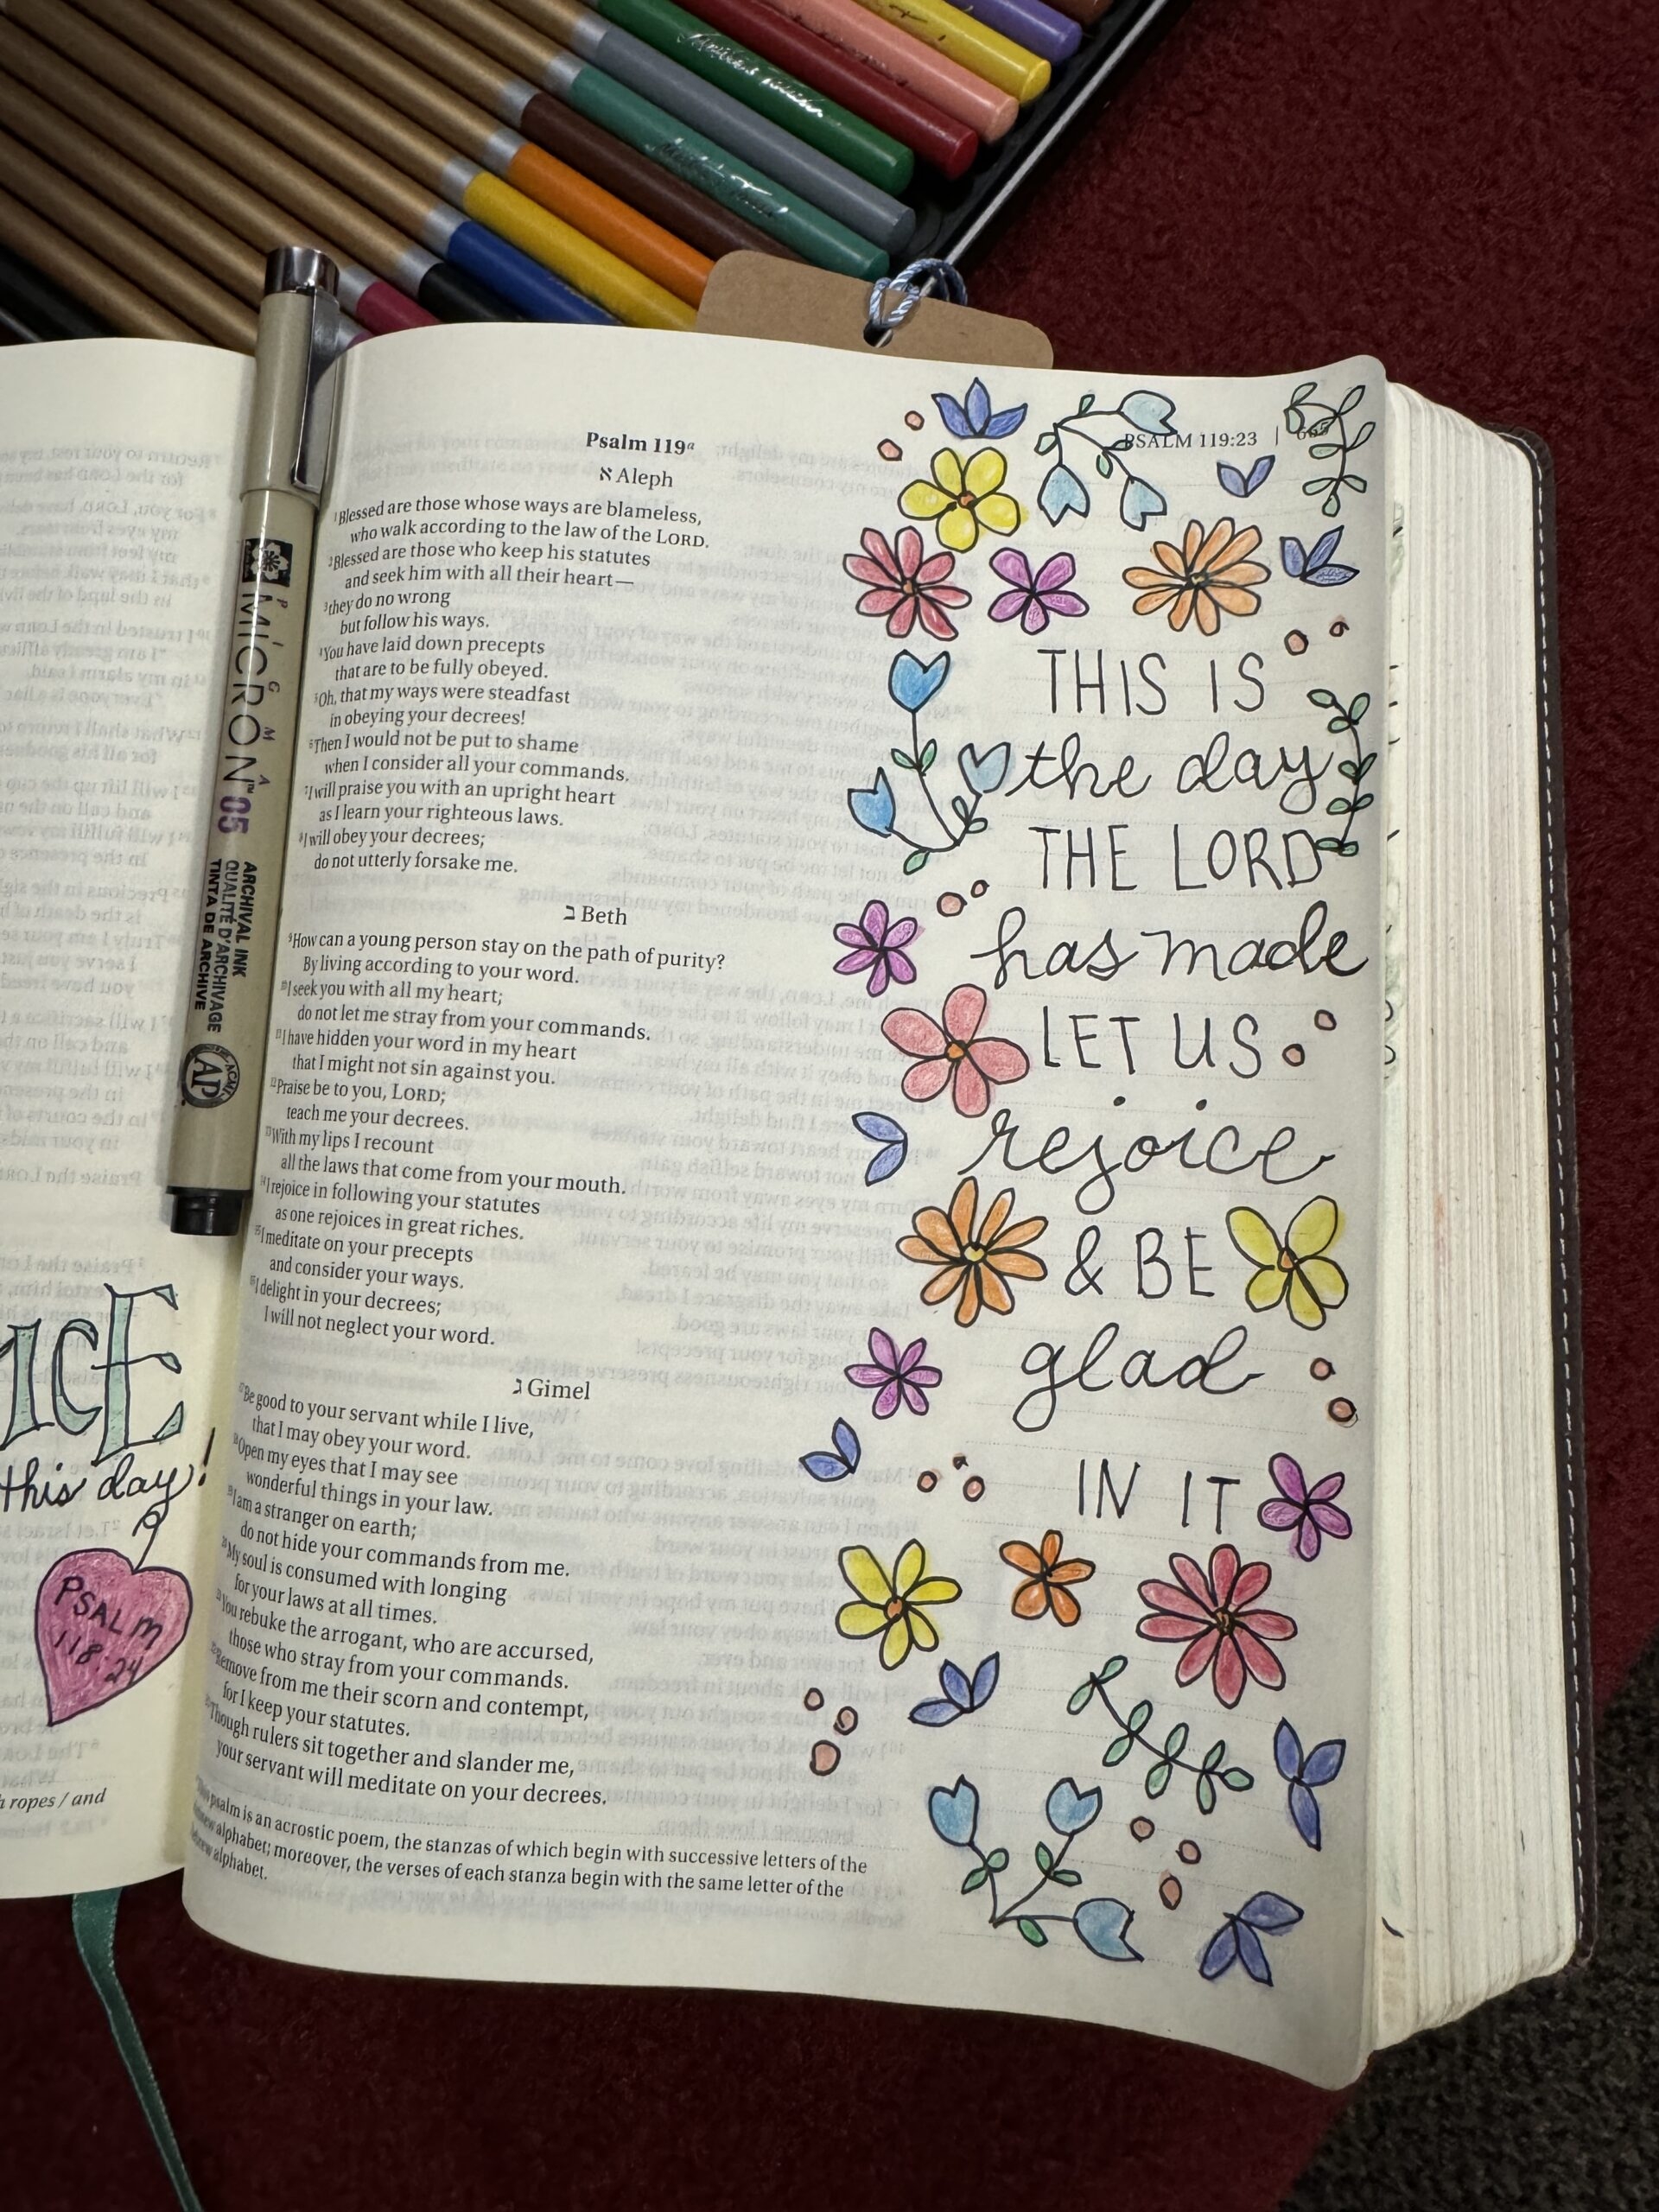 Psalm 119a
א Aleph
1Blessed are those whose ways are blameless,
who walk according to the law of the LORD.
2Blessed are those who keep his statutes
and seek him with all their heart—
3they do no wrong
but follow his ways.
4You have laid down precepts
that are to be fully obeyed.
5Oh, that my ways were steadfast
in obeying your decrees!
6Then I would not be put to shame
when I consider all your commands.
7I will praise you with an upright heart
as I learn your righteous laws.
8I will obey your decrees;
do not utterly forsake me.
ב Beth
9How can a young person stay on the path of purity?
By living according to your word.
10I seek you with all my heart;
do not let me stray from your commands.
11I have hidden your word in my heart
that I might not sin against you.
12Praise be to you, LORD;
teach me your decrees.
13With my lips I recount
all the laws that come from your mouth.
14I rejoice in following your statutes
as one rejoices in great riches.
15I meditate on your precepts
and consider your ways.
16I delight in your decrees;
I will not neglect your word.
ג Gimel
17Be good to your servant while I live,
that I may obey your word.
18Open my eyes that I may see
wonderful things in your law.
19I am a stranger on earth;
do not hide your commands from me.
20My soul is consumed with longing
for your laws at all times.
21You rebuke the arrogant, who are accursed,
those who stray from your commands.
22Remove from me their scorn and contempt,
for I keep your statutes.
23Though rulers sit together and slander me,
your servant will meditate on your decrees.
psalm is an acrostic poem, the stanzas of which begin with successive letters of the
alphabet; moreover, the verses of each stanza begin with the same letter of the
alphabet.
PSALM 119:23 |
THIS IS
the day
THE LORD
has made
LET US
rejoice
& BE
glad
IN IT
PIGMA
MICRON™ 05
ARCHIVAL INK
QUALITÉ D'ARCHIVAGE
TINTA DE ARCHIVE
AP
ICE
this day!
PSALM
118:24
ropes / and